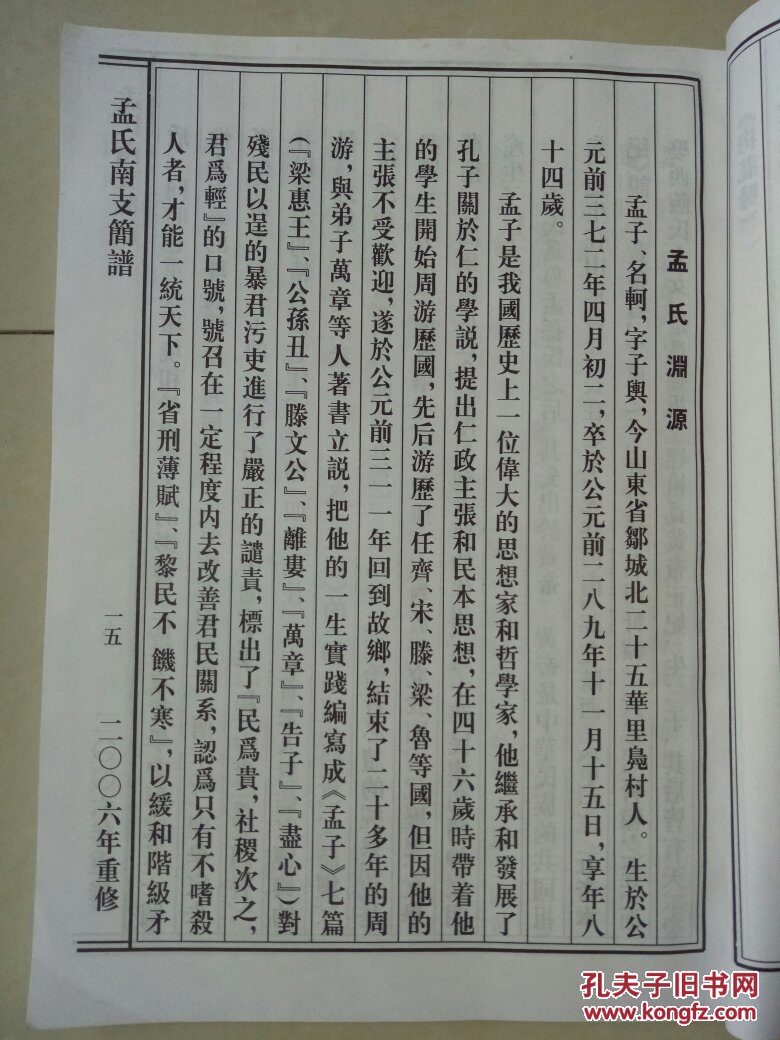 孟氏淵源
孟子、名軻，字子輿，今山東省鄒城北二十五華里鳧村人。生於公
元前三七二年四月初二，卒於公元前二八九年十一月十五日，享年八
十四歲。
孟子是我國歷史上一位偉大的思想家和哲學家，他繼承和發展了
孔子關於仁的學説，提出仁政主張和民本思想，在四十六歲時帶着他
的學生開始周游歷國，先后游歷了任齊、宋、滕、梁、魯等國，但因他的
主張不受歡迎，遂於公元前三一一年回到故鄉，結束了二十多年的周
游，與弟子萬章等人著書立説，把他的一生實踐編寫成《孟子》七篇
（『梁惠王』、『公孫丑』、『滕文公』、『離婁』、『萬章』、『告子』、『盡心』）對
殘民以逞的暴君污吏進行了嚴正的譴責，標出了『民爲貴，社稷次之，
君爲輕』的口號，號召在一定程度内去改善君民關系，認爲只有不嗜殺
人者，才能一統天下。『省刑薄賦』、『黎民不饑不寒』，以緩和階級矛
孟氏南支簡譜
一五
二〇〇六年重修
孔夫子旧书网
www.kongfz.com